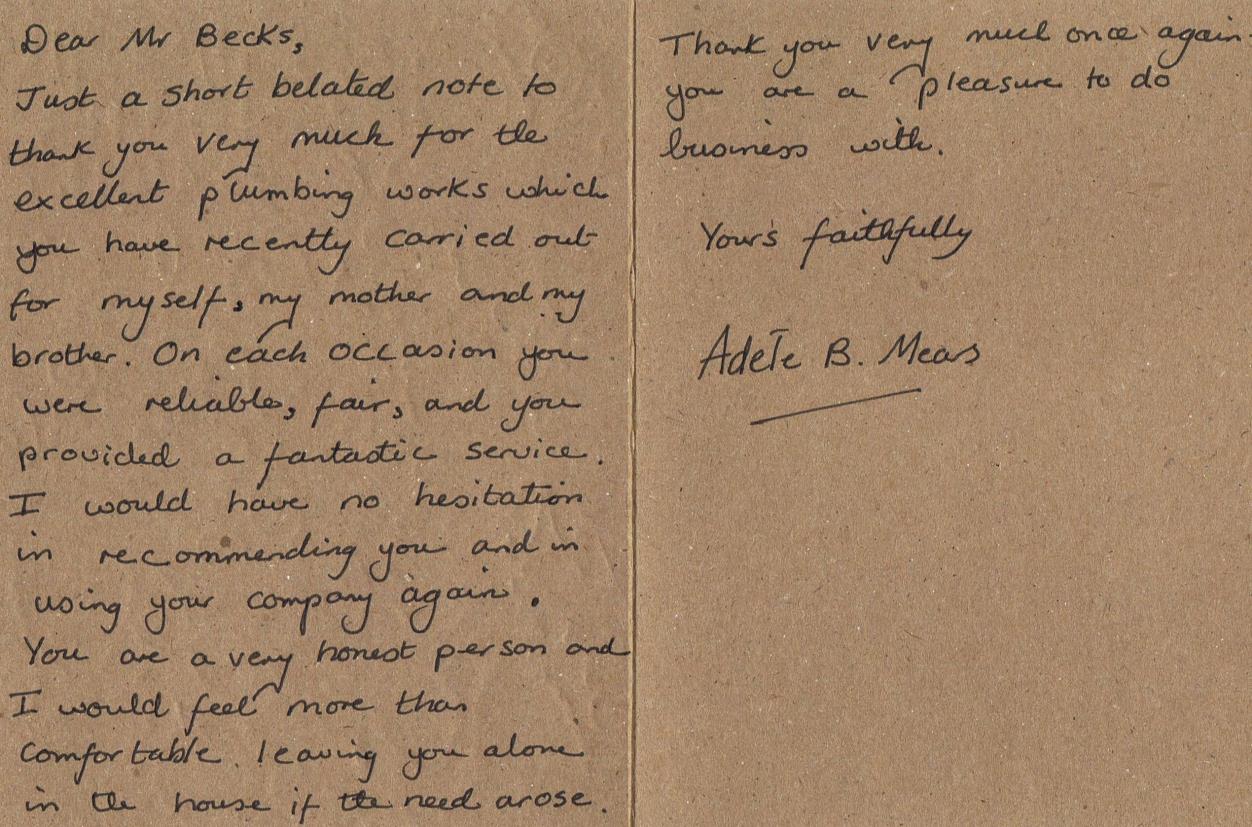 Dear Mr Becks,
Just a short belated note to
thank you very much for the
excellent plumbing works which
you have recently carried out
for myself, my mother and my
brother. On each occasion you
were reliable, fair, and you
provided a fantastic service.
I would have no hesitation
in recommending you and in
using your company again.
You are a very honest person and
I would feel more than
comfortable leaving you alone
in the house if the need arose.
Thank you very much once again.
you are a pleasure to do
business with.
Yours faithfully
Adele B. Mears